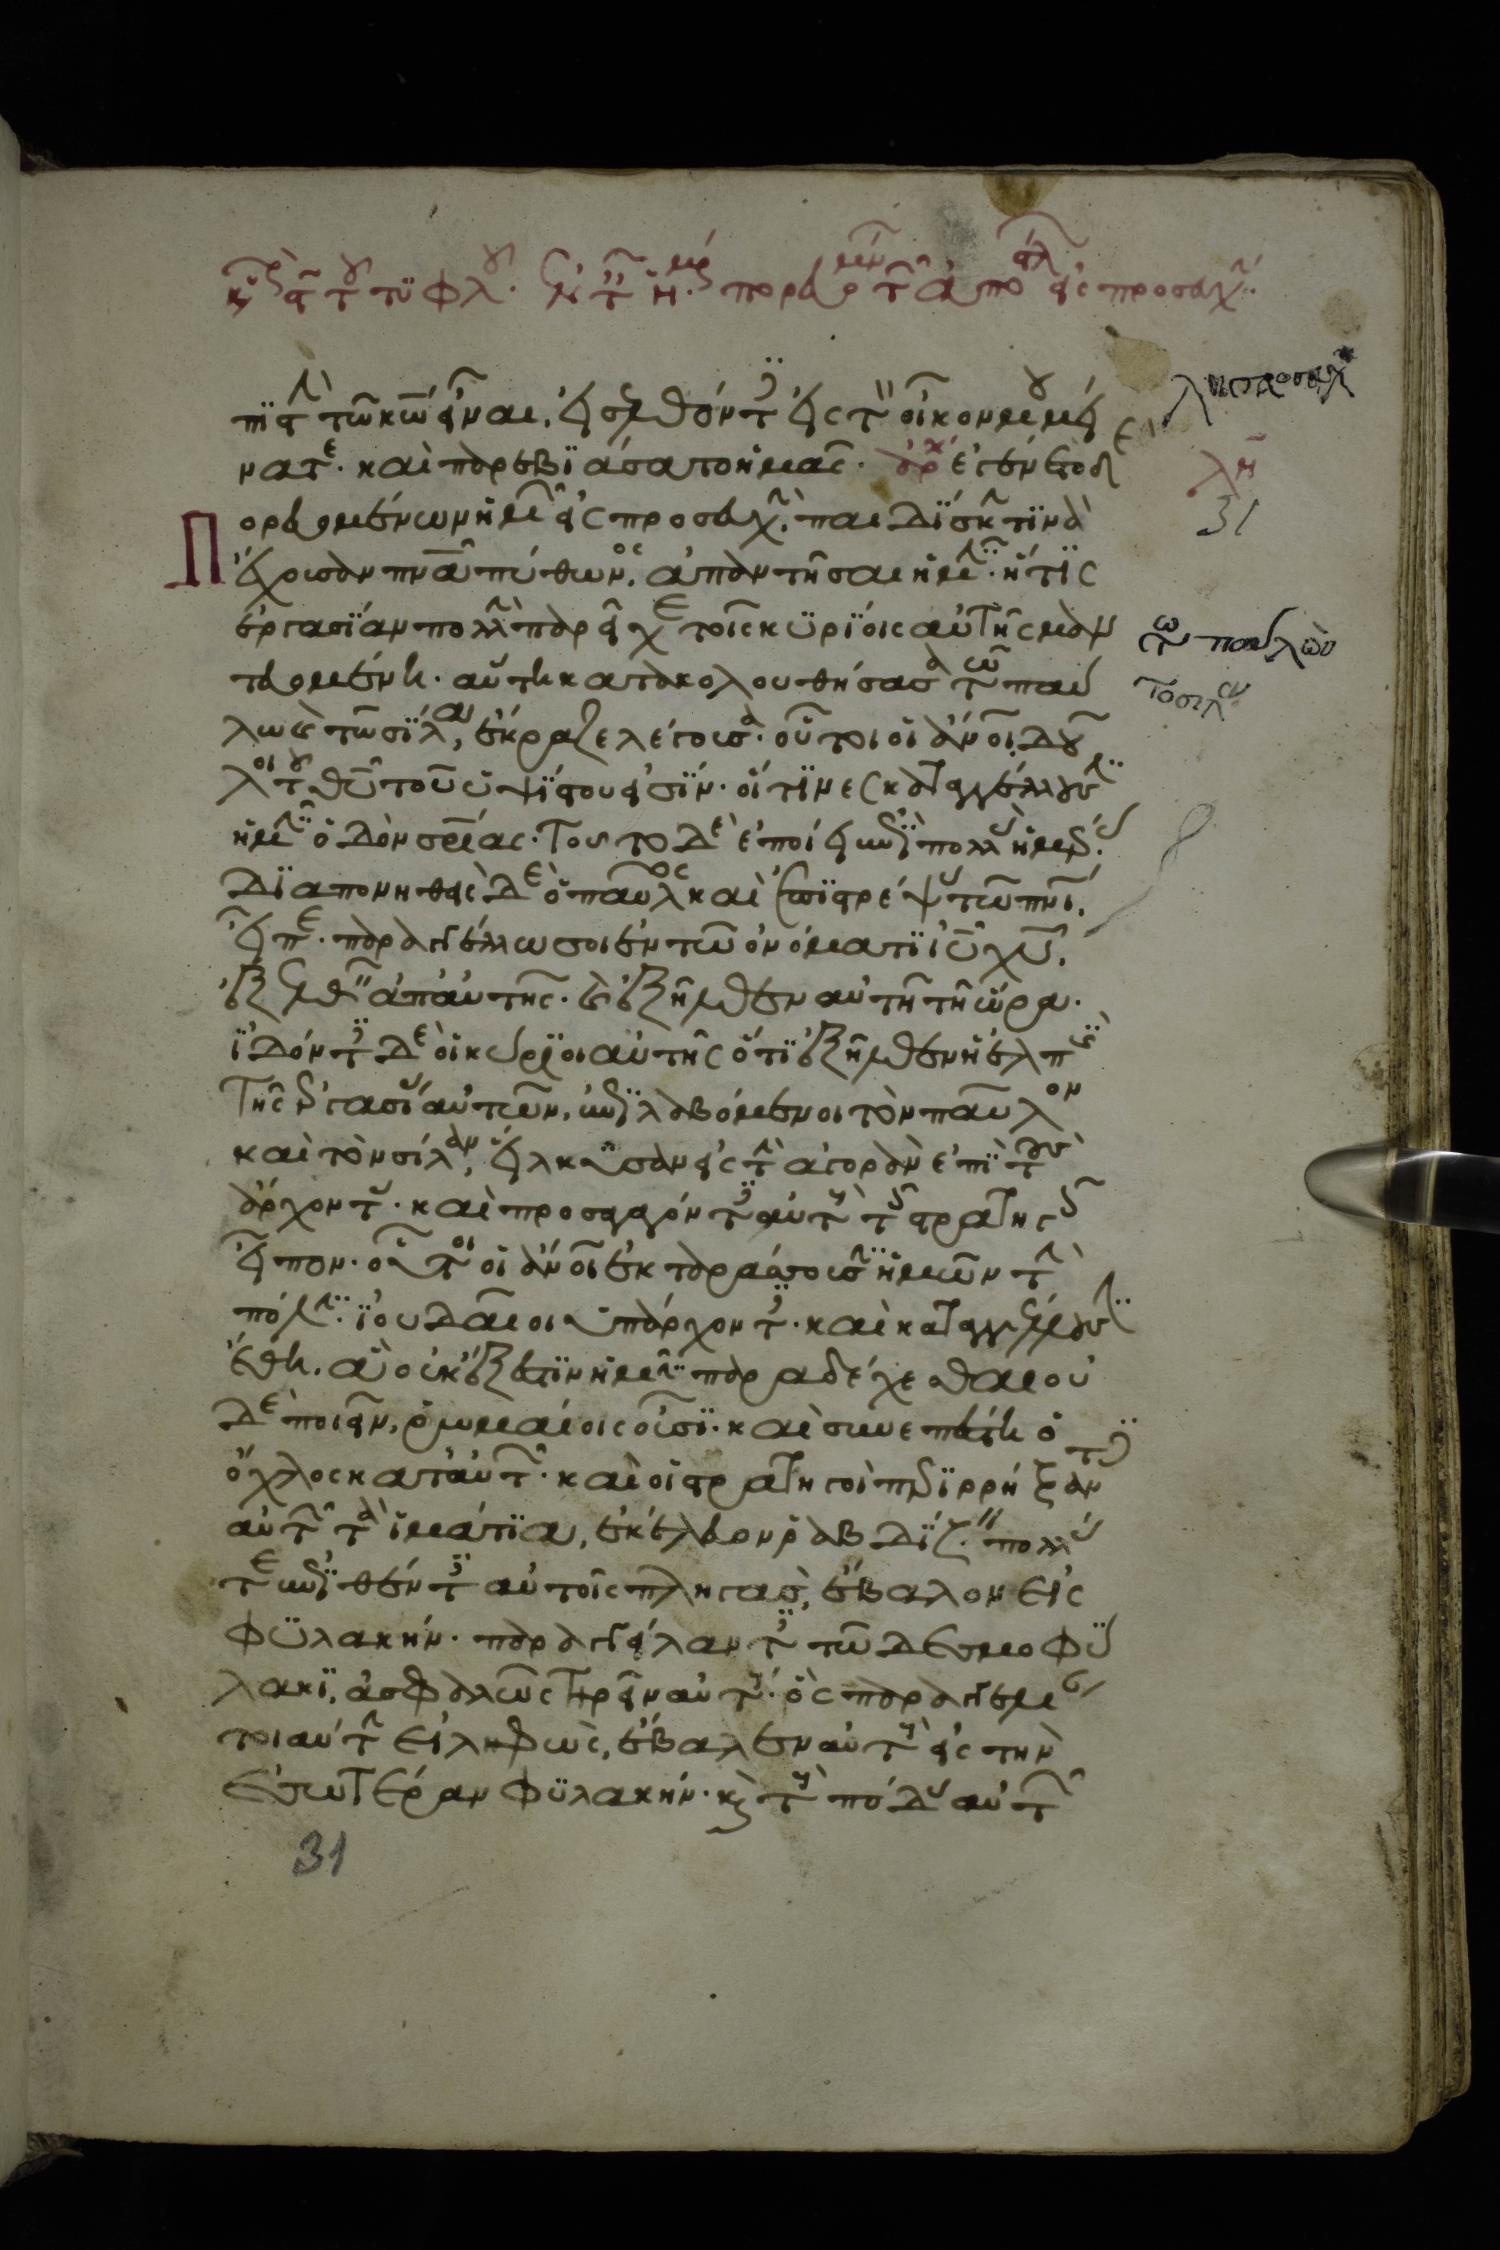 πιστὴν τῶ κω εἶναι, εἰσελθόντες εἰς τὸν οἶκον μου μεί
νατε· καὶ παρεβιάσατο ἡμᾶς· ἀρχ ἐγένετο δὲ
πορευομένων ἡμῶν εἰς προσευχὴν, παιδίσκην τινὰ
ἔχουσαν πνα πύθωνος, ἀπαντῆσαι ἡμῖν· ἥτις
ἐργασίαν πολλὴν παρεῖχε τοῖς κυρίοις αὐτῆς μαν
τευομένη· αὕτη κατακολουθήσασα τῶ παύ
λω καὶ τῶ σίλα, ἔκραζε λέγουσα· οὗτοι οἱ ἄνοι δοῦ
λοι τοῦ θυ τοῦ ὑψίστου εἰσίν· οἵτινες καταγγέλλουσιν
ἡμῖν ὁδὸν σρίας· τοῦτο δὲ ἐποίει ἐπὶ πολλὰς ἡμέρας·
διαπονηθεὶς δὲ ὁ παῦλος καὶ ἐπιστρέψας τῶ πνι,
εἶπε· παραγγέλλω σοι ἐν τῶ ὀνόματι ιυ χυ,
ἐξελθεῖν ἀπ' αὐτῆς· καὶ ἐξῆλθεν αὐτῆ τῆ ὥρα·
ἰδόντες δὲ οἱ κύριοι αὐτῆς ὅτι ἐξῆλθεν ἡ ἐλπὶς
τῆς ἐργασίας αὐτῶν, ἐπιλαβόμενοι τὸν παῦλον
καὶ τὸν σίλαν, εἵλκυσαν εἰς τὴν ἀγορὰν ἐπὶ τοὺς
ἄρχοντας· καὶ προσαγαγόντες αὐτοὺς τοῖς στρατηγοῖς
εἶπον· οὗτοι οἱ ἄνοι ἐκταράσσουσιν ἡμῶν τὴν
πόλιν· ἰουδαῖοι ὑπάρχοντες· καὶ καταγγέλλουσιν
ἔθη. ἃ οὐκ ἔξεστιν ἡμῖν παραδέχεσθαι οὐ
δὲ ποιεῖν, ῥωμαίοις οὖσι· καὶ συνεπέστη ὁ
ὄχλος κατ' αὐτῶν· καὶ οἱ στρατηγοὶ περιρρήξαντες
αὐτῶν τὰ ἱμάτια, ἐκέλευον ῥαβδίζειν· πολλάς
τε ἐπιθέντες αὐτοῖς πληγὰς, ἔβαλον εἰς
φυλακήν· παραγγείλαντες τῶ δεσμοφύ
λακι, ἀσφαλῶς τηρεῖν αὐτούς· ὃς παραγγε
λίαν τοιαύτην εἰληφὼς, ἔβαλεν αὐτοὺς εἰς τὴν
ἐσωτέραν φυλακήν· καὶ τοὺς πόδας αὐτῶν
31
31